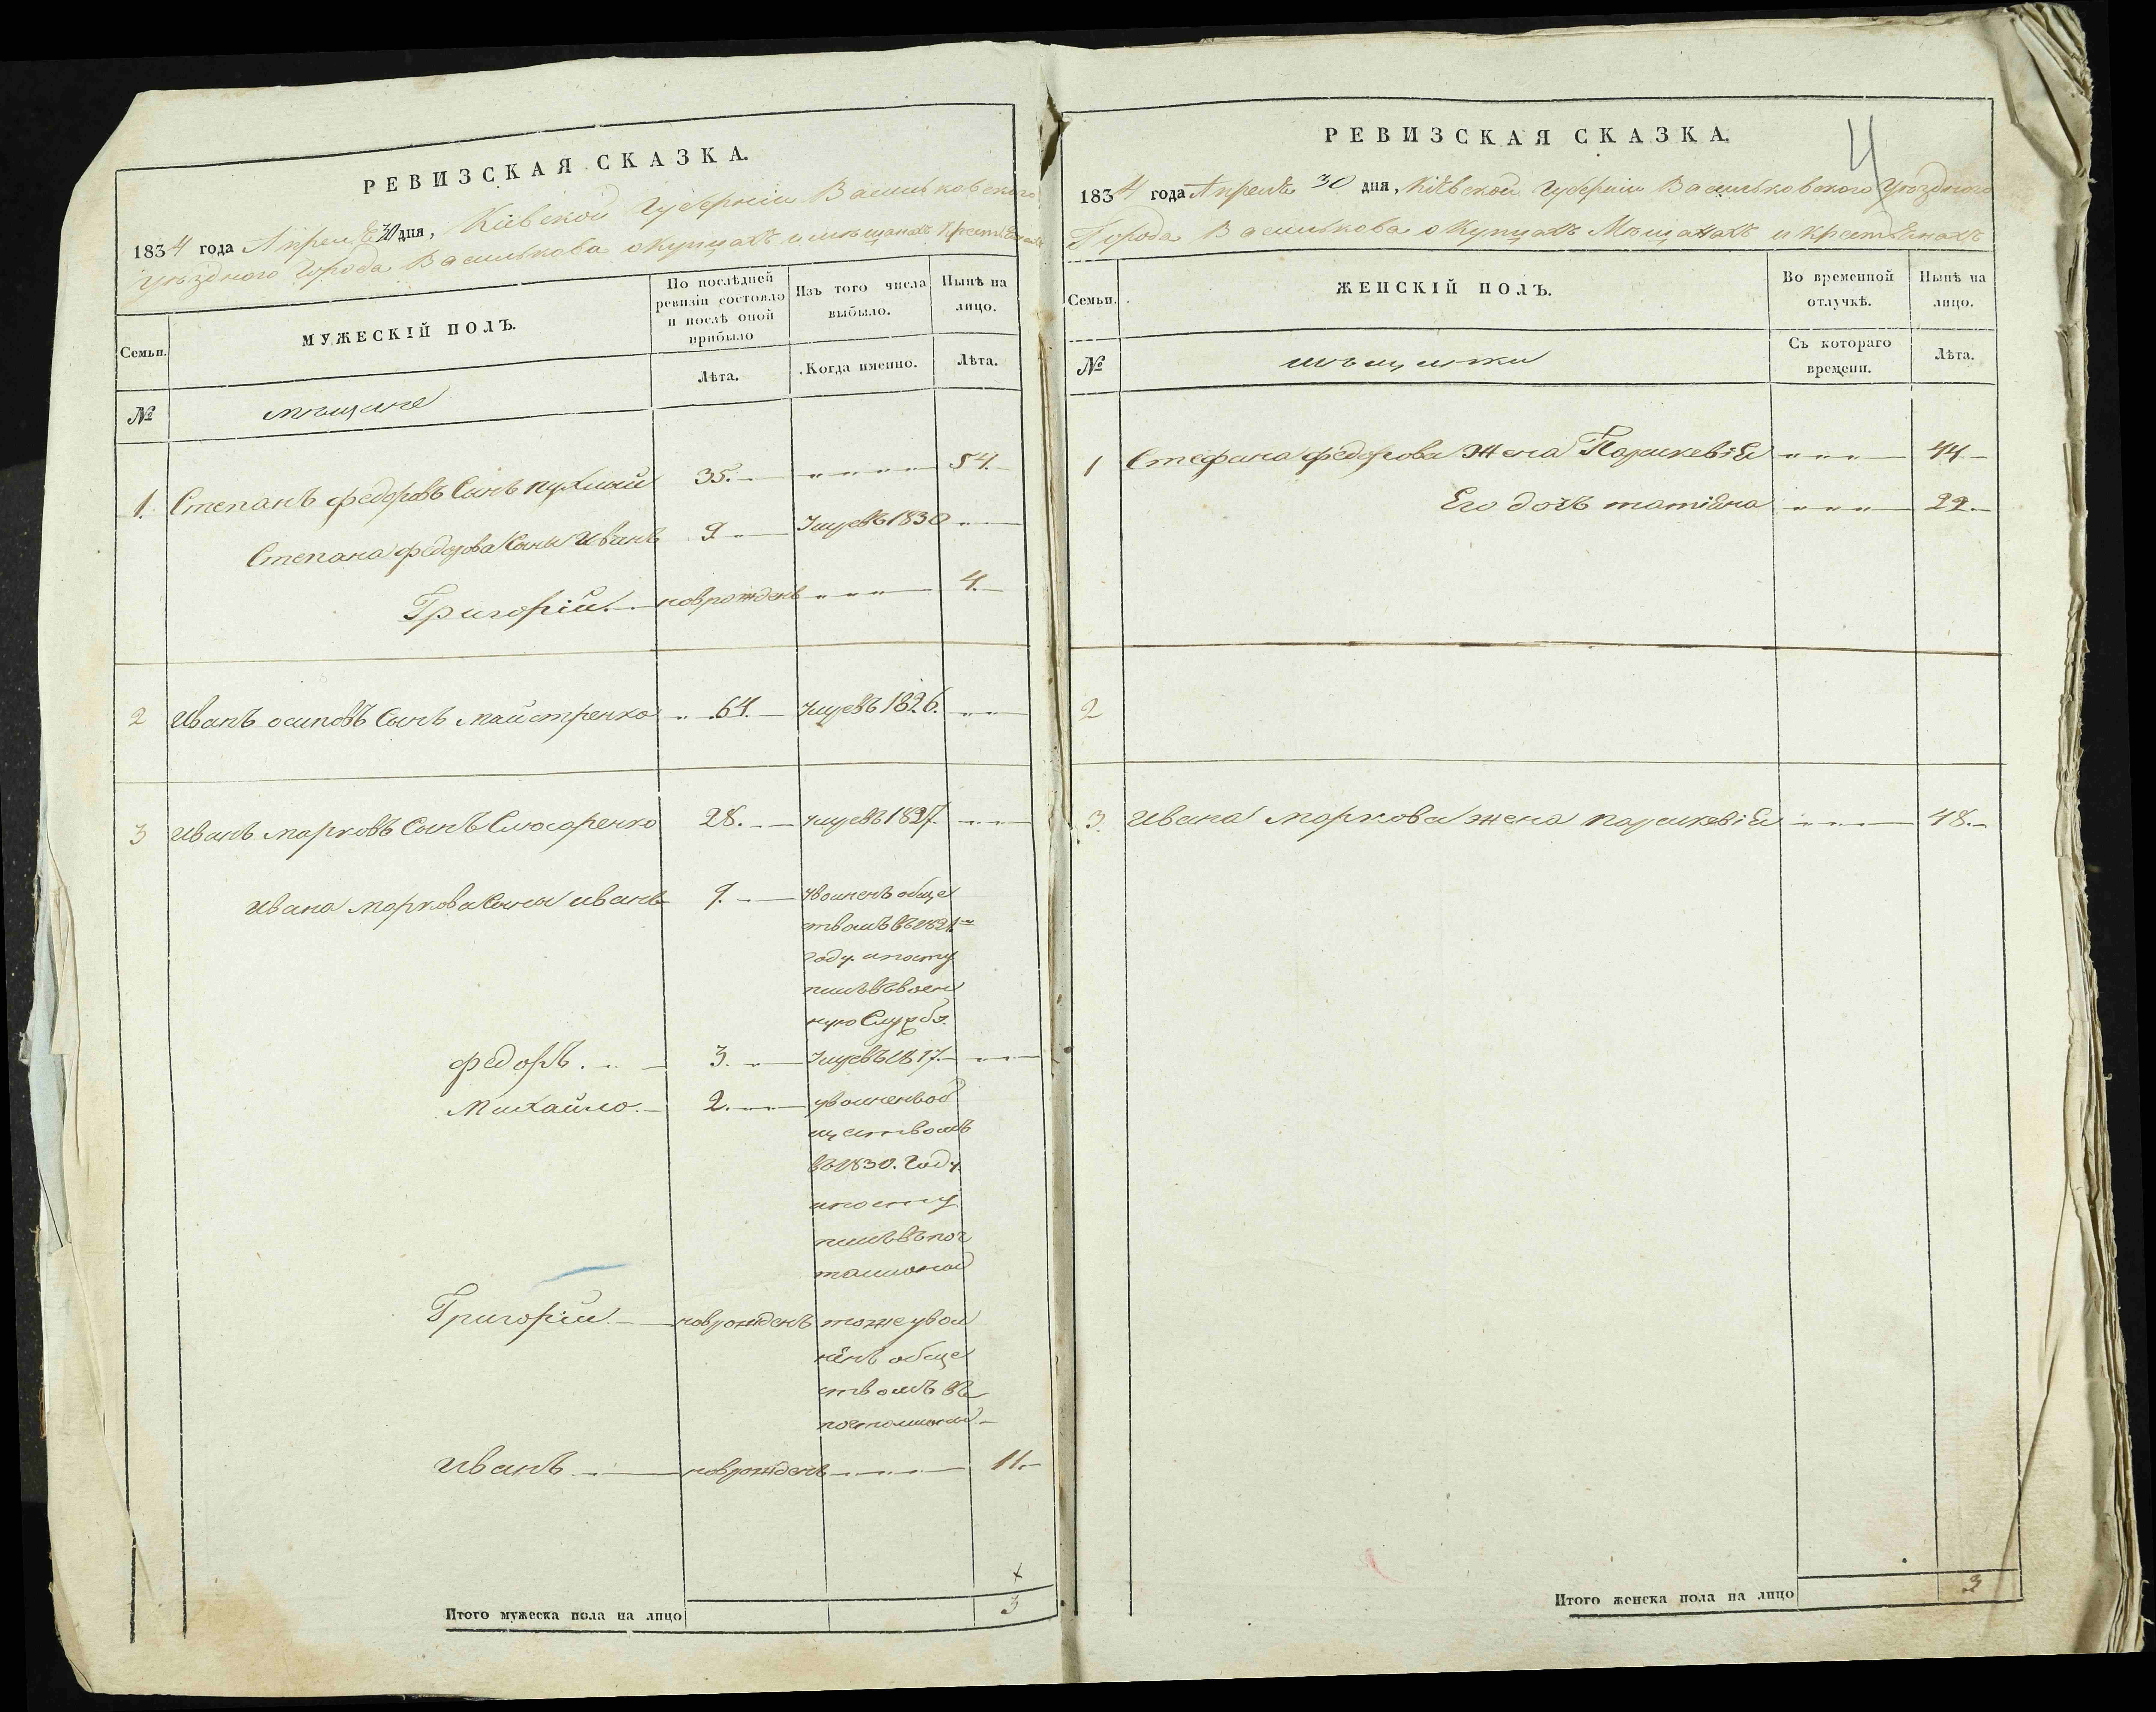 РЕВИЗСКАЯ СКАЗКА.
1834 года Апреля 30 дня, Кіевской Губерніи Васильковского
уѣздного Города Василькова о Купцахъ и мѣщанахъ Крестьянахъ
Семьи.
МУЖЕСКІЙ ПОЛЪ.
По послѣдней
ревизіи состояло
и послѣ оной
прибыло
Изъ того числа
выбыло.
Нынѣ на
лицо.
Лѣта.
Когда именно.
Лѣта.
№
мѣщане
1. Степанъ федоровъ Сынъ 35. 54.
Степана федорова Сыны Иванъ 9 Умре въ 1830
Григорій. новрожденъ 4.
2 Иванъ осиповъ Сынъ Майстренко 64. Умре въ 1826.
3 Иванъ марковъ Сынъ Слюсаренко 28. умре въ 1827.
Ивана маркова Сыны иванъ 9. уволненъ обще
ствомъ въ 1821м
году и посту
пилъ въ воен
ную Службу.
федоръ. 3. Умре въ 1817.
Михайло. 2. уволненъ об
ществомъ
въ 1830. Году.
и посту
пилъ въ поч
талионы
Григорій. новрожденъ тоже увол
ненъ обще
ствомъ въ
почталионы.
Иванъ. новрожденъ 11.
Итого мужеска пола на лицо 3
РЕВИЗСКАЯ СКАЗКА.
4
1834 года Апреля 30 дня, Кіевской Губерніи Васильковского Уѣздного
Города Василькова о Купцахъ Мѣщанахъ и крестьянахъ
Семьи.
ЖЕНСКІЙ ПОЛЪ.
Во временной
отлучкѣ.
Нынѣ на
лицо.
Съ котораго
времени.
Лѣта.
№
мѣщанки
1 Стефана федорова Жена Параскевія 44
Его дочь татіяна 22.
2
3. Ивана маркова жена параскевія 48.
Итого женска пола на лицо 3